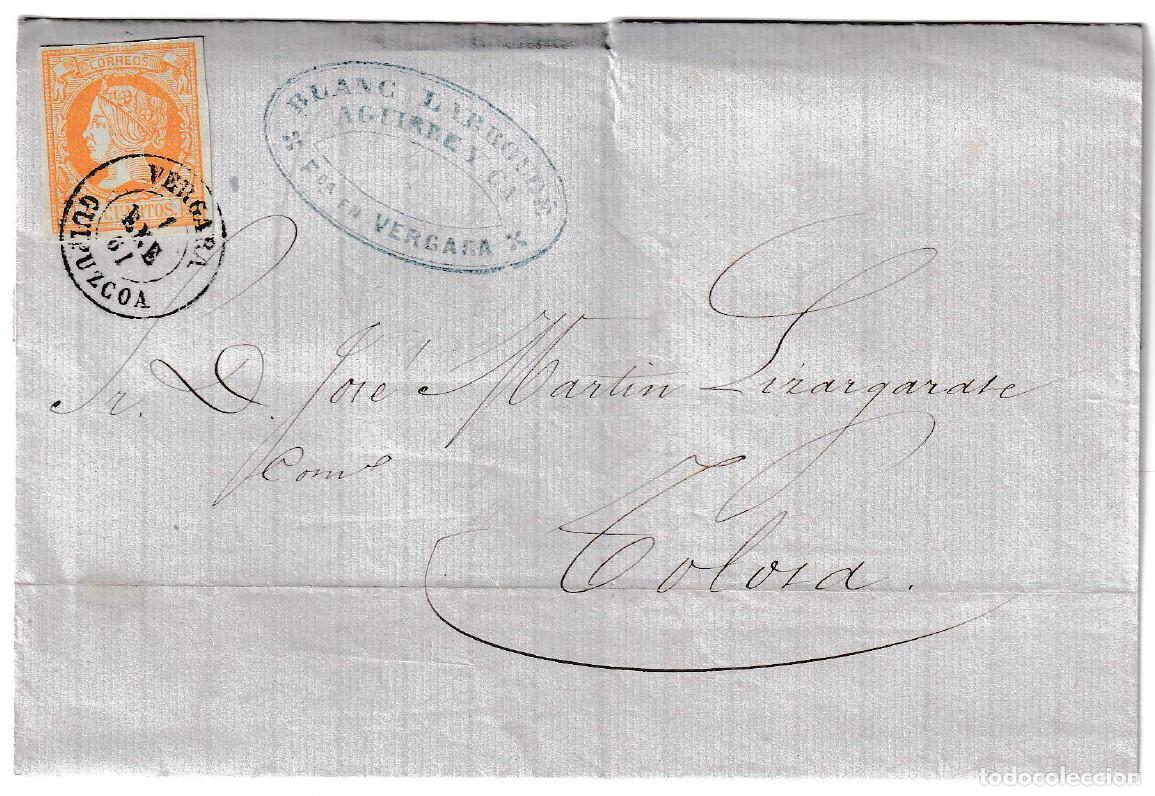 CORREOS
CUARTOS
VERGARA
1
ENE
61
GUIPUZCOA
BLANC LARRONDE
AGUIRRE Y CA
Fca EN VERGARA
Sr. D. José Martin Lizargarate
Tolosa.
todocoleccion